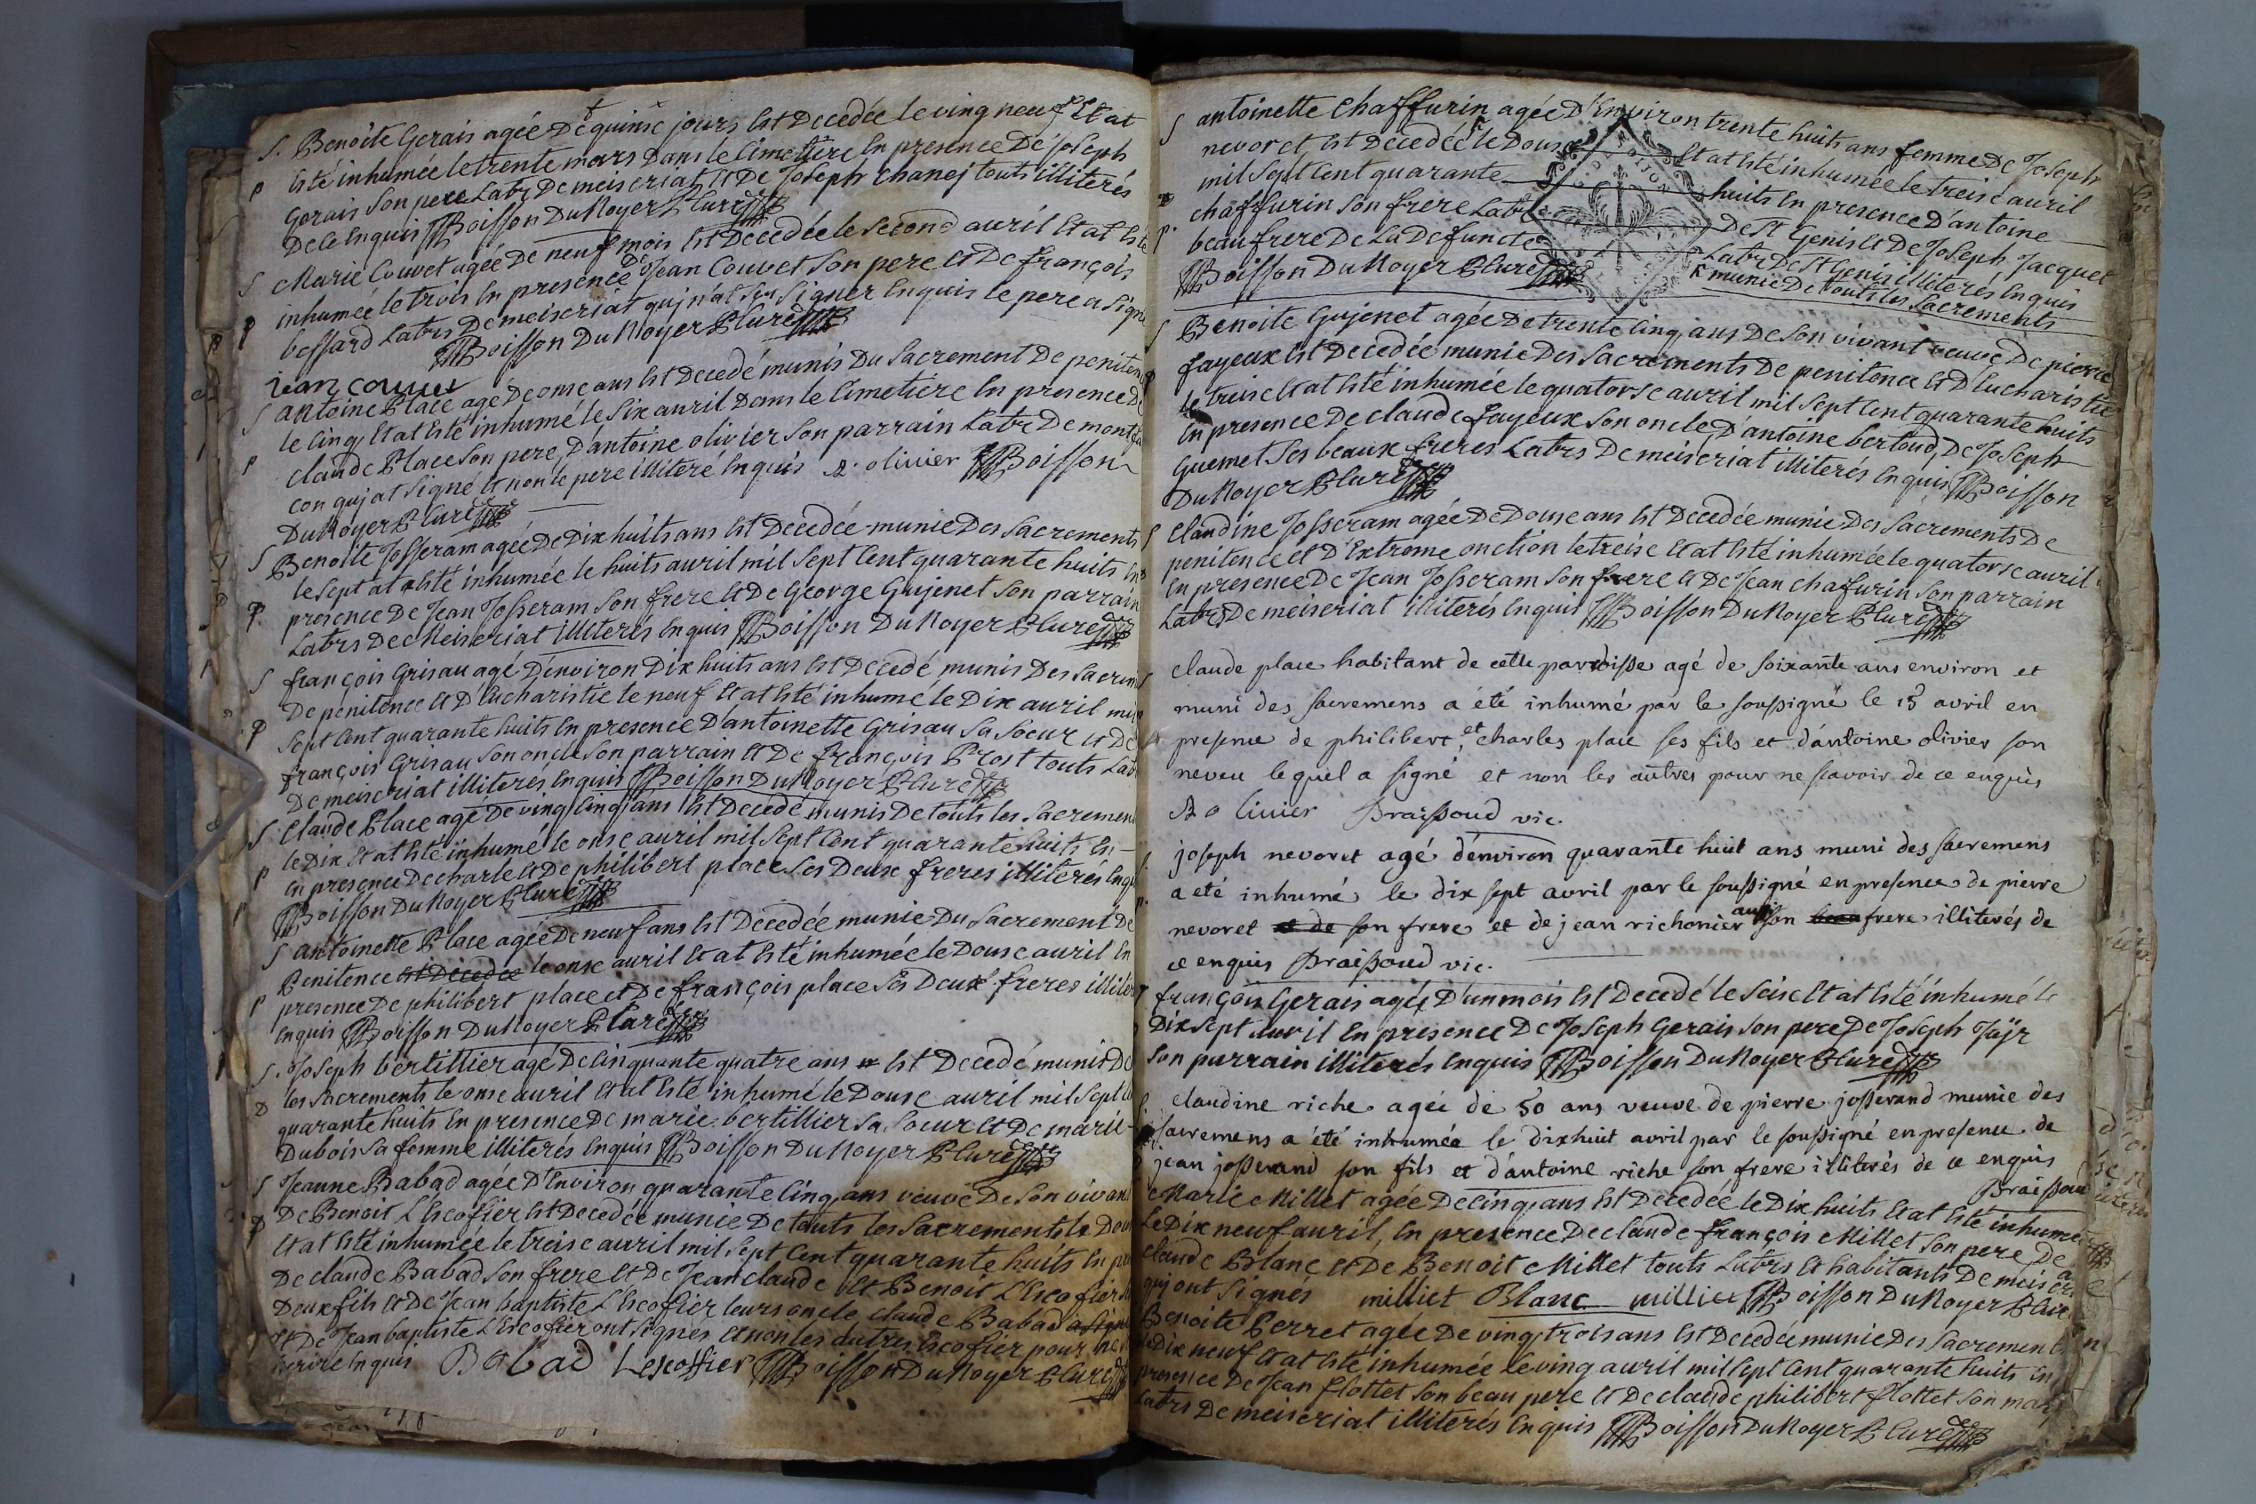 S. Benoite Gerais agée De quinse jours Est Decedée le ving neuf Et at
Esté inhumée le trente mars Dans le Cimetiere En presence De Joseph
Gerais son pere Labr De meiseriat Et De Joseph Chanej touts illiterés
De ce Enquis Boisson Du Noyer Curé
S Marie Couvet agée De neuf mois Est Decedée le second auril Et at Esté
inhumée le trois En presence De Jean Couvet son pere Et De françois
bessard Labrs De meiseriat quj n'at sçu signer Enquis le pere a signé
Boisson Du Noyer Curé
jean couuet
S antoine Place agé De onse ans Est Decedé munis Du Sacrement De peniten
le cinq Et at Esté inhumé le six auril Dans le Cimetiere En presence De
p claude Place son pere, D'antoine olivier son parrain Labr De mont
con quj at signé Et non le pere illiteré Enquis A. olivier Boisson
Du Noyer Curé
S Benoite Josseram agée De Dix huits ans Est Decedée munie Des Sacrements
le sept at esté inhumée le huits auril mil sept Cent quarante huits En
p. presence De Jean Josseram son frere Et De George Gujenet son parrain
Labrs De Meiseriat illiterés Enquis Boisson Du Noyer Curé
S françois Grisau agé D'environ Dix huits ans Est Decedé munis Des Sacrem
De penitence Et D'Eucharistie le neuf Et at Esté inhumé le Dix auril mil
p sept Cent quarante huits En presence D'antoinette Grisau sa soeur Et De
françois Grisau son oncle son parrain Et De françois Prost touts Lab
De meiseriat illiterés Enquis Boisson Du Noyer Curé
S Claude Place agé De ving cinq ans Est Decedé munis De touts les Sacremen
le Dix Et at Esté inhumé le onse auril mil sept Cent quarante huits En
p En presence De charle Et De philibert place ses Deux freres illiterés Enqu
Boisson Du Noyer Curé
S antoinette Place agée De neuf ans Est Decedée munie Du Sacrement De
Penitence est Decedée le onse auril Et at Esté inhumée le Douse auril En
p presence De philibert place et De françois place ses Deux freres illiter
Enquis Boisson Du Noyer Curé
S. Joseph bertillier agé De Cinquante quatre ans Est Decedé munis De
les Sacrements le onse auril Et at Esté inhumé le Douse auril mil sept Ce
quarante huits En presence De marie bertillier sa soeur Et De marie
Dubois sa femme illiterés Enquis Boisson Du Noyer Curé
S Jeanne Babad agée D'Environ quarante Cinq ans veuve De son vivant
p De Benoit L'Escofier Est Decedée munie De touts les Sacrements le Dou
Et at Esté inhumée le treise auril mil sept Cent quarante huits En pre
De claude Babad son frere Et De Jean claude Et Benoit L'Escofier
Deux fils Et De Jean baptiste L'Escofier leurs oncle claude Babad a signé
Et De Jean baptiste L'Escofier ont signes Et non les autres Escofier pour ne
écrire Enquis Babad Lescoffier Boisson Du Noyer Curé
S antoinette Chaffurin agée D'Environ trente huits ans femme De Joseph
nevoret Est Decedée le Douse Et at Esté inhumée le treise auril
mil sept Cent quarante huits En presence D'antoine
chaffurin son frere Labr De St Genis Et De Joseph Jacquet
beaufrere De la Defuncte Labr De St Genis illiterés Enquis
Boisson Du Noyer Curé munie De touts les Sacrements
S Benoite Gujenet agée De trente Cinq ans De son vivant veuve De pierre
fayeux Est Decedée munie Des Sacrements De penitence Et D'Eucharistie
le treise Et at Esté inhumée le quatorse auril mil sept Cent quarante huits
En presence De claude fayeux son oncle, D'antoine bertoud, De Joseph
Guemet ses beaux freres Labrs De meiseriat illiterés Enquis Boisson
Du Noyer Curé
S Claudine Josseram agée De Douse ans Est Decedée munie Des Sacrements De
penitence Et D'Extreme onction le treise Et at Esté inhumée le quatorse auril
En presence De Jean Josseram son frere Et De Jean chafurin son parrain
Labrs De meiseriat illiterés Enquis Boisson Du Noyer Curé
claude place habitant de cette parroisse agé de soixante ans environ et
muni des sacremens a été inhumé par le soussigné le 15 avril en
presence de philibert, et charles place ses fils et d'antoine olivier son
neveu lequel a signé et non les autres pour ne scavoir de ce enquis
A olivier Braissoud vic.
joseph nevoret agé d'environ quarante huit ans muni des sacremens
a été inhumé le dix sept avril par le soussigné en presence de pierre
nevoret et de son frere et de jean richonier aussi son beau frere illiterés de
ce enquis Braissoud vic.
françois Gerais agée D'un mois Est Decedé le seise Et at Esté inhumé le
Dix sept auril En presence De Joseph Gerais son pere De Joseph Jaÿr
son parrain illiterés Enquis Boisson Du Noyer Curé
claudine riche agée de 50 ans veuve de pierre josserand munie des
sacremens a été inhumée le dixhuit avril par le soussigné en presence de
jean josserand son fils et d'antoine riche son frere illiterés de ce enquis
Braissoud
Marie Millet agée De Cinq ans Est Decedée le Dix huits Et at Esté inhumée
le Dix neuf auril, En presence De claude françois Millet son pere De
claude Blanc et De Benoit Millet touts Labrs Et habitants De meiseriat
quj ont signés milliet Blanc millier Boisson Du Noyer Curé
Benoite Perret agée De ving trois ans Est Decedée munie Des Sacrements
le Dix neuf Et at Esté inhumée le ving auril mil sept Cent quarante huits En
presence De Jean flottet son beau pere Et De claude philibert flottet son mari
Labrs De meiseriat illiterés Enquis Boisson Du Noyer Curé